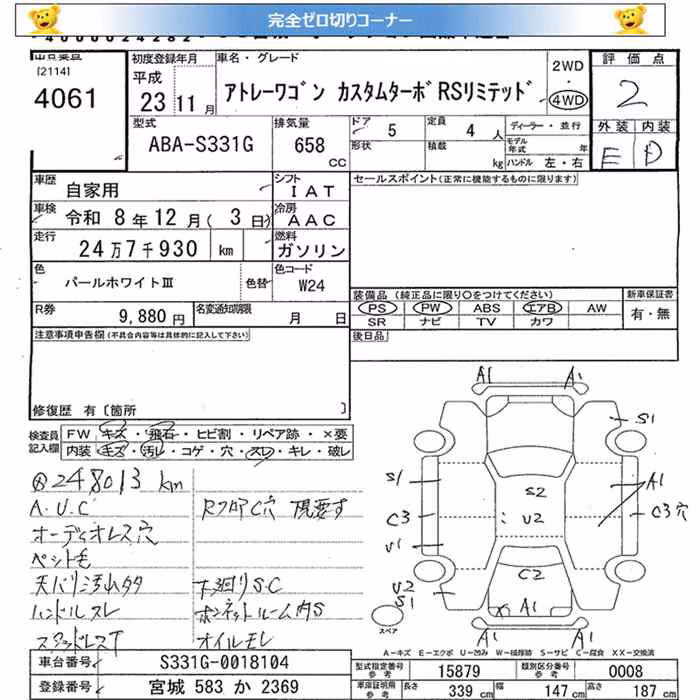 完全ゼロ切りコーナー
[2114]
4061
初度登録年月
平成
23年11月
車名・グレード
アトレーワゴン カスタムターボRSリミテッド
2WD
・
4WD
評価点
2
外装 内装
E D
型式
ABA-S331G
排気量
658
CC
ドア
5
定員
4人
形状
積載
kg
ディーラー・並行
モデル年式
年
ハンドル 左・右
車歴
自家用
シフト
IAT
車検
令和 8年12月(3日)
冷房
AAC
走行
24万7千930 km
燃料
ガソリン
色
パールホワイトⅢ
色替
色コード
W24
R券
9,880円
名変通知期限
月 日
セールスポイント(正常に機能するものに限ります)
装備品(純正品に限り○をつけてください)
PS PW ABS エアB AW
SR ナビ TV カワ
新車保証書
有・無
後日品
注意事項申告欄(不具合内容等は具体的に記入して下さい)
修復歴 有[箇所 ]
検査員記入欄
FW キズ・飛石・ヒビ割・リペア跡・×要
内装 キズ・汚レ・コゲ・穴・スレ・キレ・破レ
248013 km
A.U.C
RフロアC穴 現要す
オーディオレス穴
ペット毛
天バリ汚レ
ハンドルスレ
スタッドレスT
下廻りS.C
ボンネットルーム内S
オイルモレ
A1 A1
S1
S1
A1
S2
C3
U2
C3穴
U1
C2
U2
S1
X A1
A1 A1
スペア
A-キズ E-エクボ U-凹み W-補修跡 S-サビ C-腐食 XX-交換済
車台番号
S331G-0018104
登録番号
宮城 583 か 2369
型式指定番号
参考
15879
類別区分番号
参考
0008
車庫証明用
参考
長さ
339 cm
幅
147 cm
高さ
187 cm